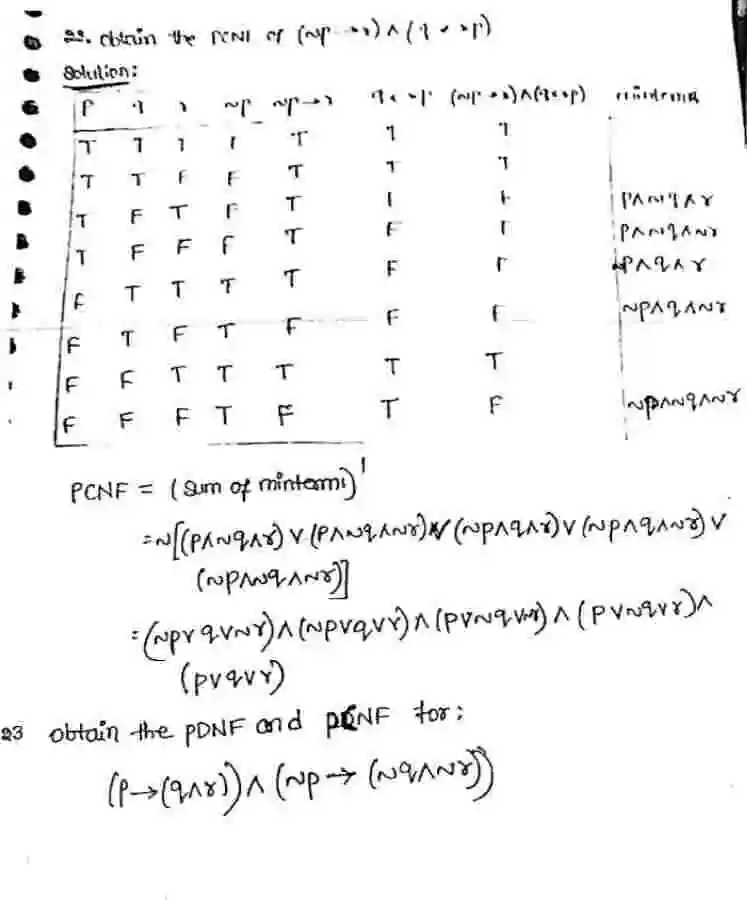 22. obtain the PCNF of (~p → r) ∧ (q ↔ p)
Solution:
P q r ~p ~p → r q ↔ p (~p → r) ∧ (q ↔ p) minterms
T T T F T T T
T T F F T T T
T F T F T F F P∧~q∧r
T F F F T F F P∧~q∧~r
F T T T T F F P∧q∧r
F T F T F F F ~P∧q∧~r
F F T T T T T
F F F T F T F ~p∧~q∧~r
PCNF = (Sum of minterms)'
= ~[(P∧~q∧r) ∨ (P∧~q∧~r) ∨ (~p∧q∧r) ∨ (~p∧q∧~r) ∨
(~p∧~q∧~r)]
= (~p∨q∨~r) ∧ (~p∨q∨r) ∧ (p∨~q∨~r) ∧ (p∨~q∨r) ∧
(p∨q∨r)
23 obtain the PDNF and PCNF for:
(P → (q∧r)) ∧ (~p → (~q∧~r))